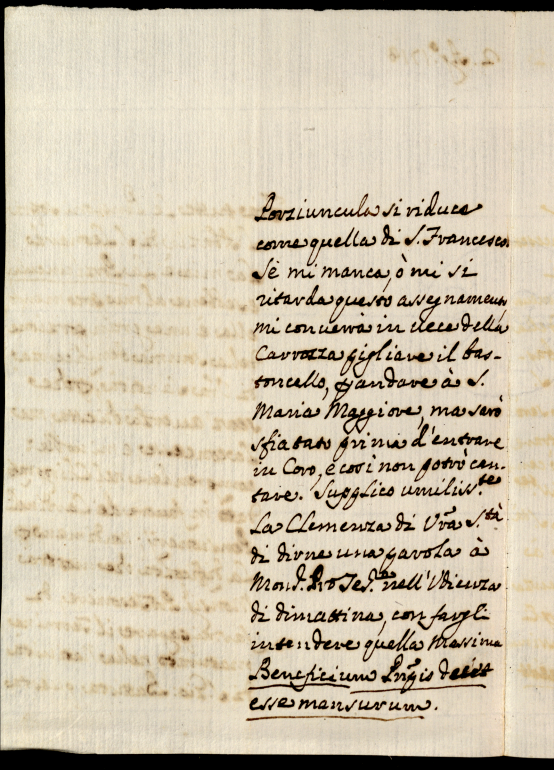 Porziuncula si riduce
come quella di S. Francesco.
Se mi manca, ò mi si
ritarda questo assegnamento,
mi converrà in vece della
Carrozza pigliare il bas-
toncello, p andare à S.
Maria Maggiore, ma sarò
sfiatato prima d'entrare
in Coro, e così non potrò can-
tare. Supplico umiliss.te
La Clemenza di Vrã S.tà
di dirne una parola à
Mons. Pro Tes.e nell'Udienza
di dimattina, con fargli
intendere quella Massima
Beneficium Prĩpis decet
esse mansurum.